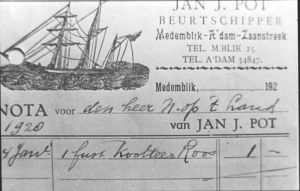 JAN J. POT
BEURTSCHIPPER
Medemblik-A'dam-Zaanstreek
TEL. M.BLIK 25.
TEL. A'DAM 34847.
Medemblik, 192
NOTA voor den heer N. op 't Land
1928 van JAN J. POT
4 Jan. 1 fust Koolteer Roos 1 —